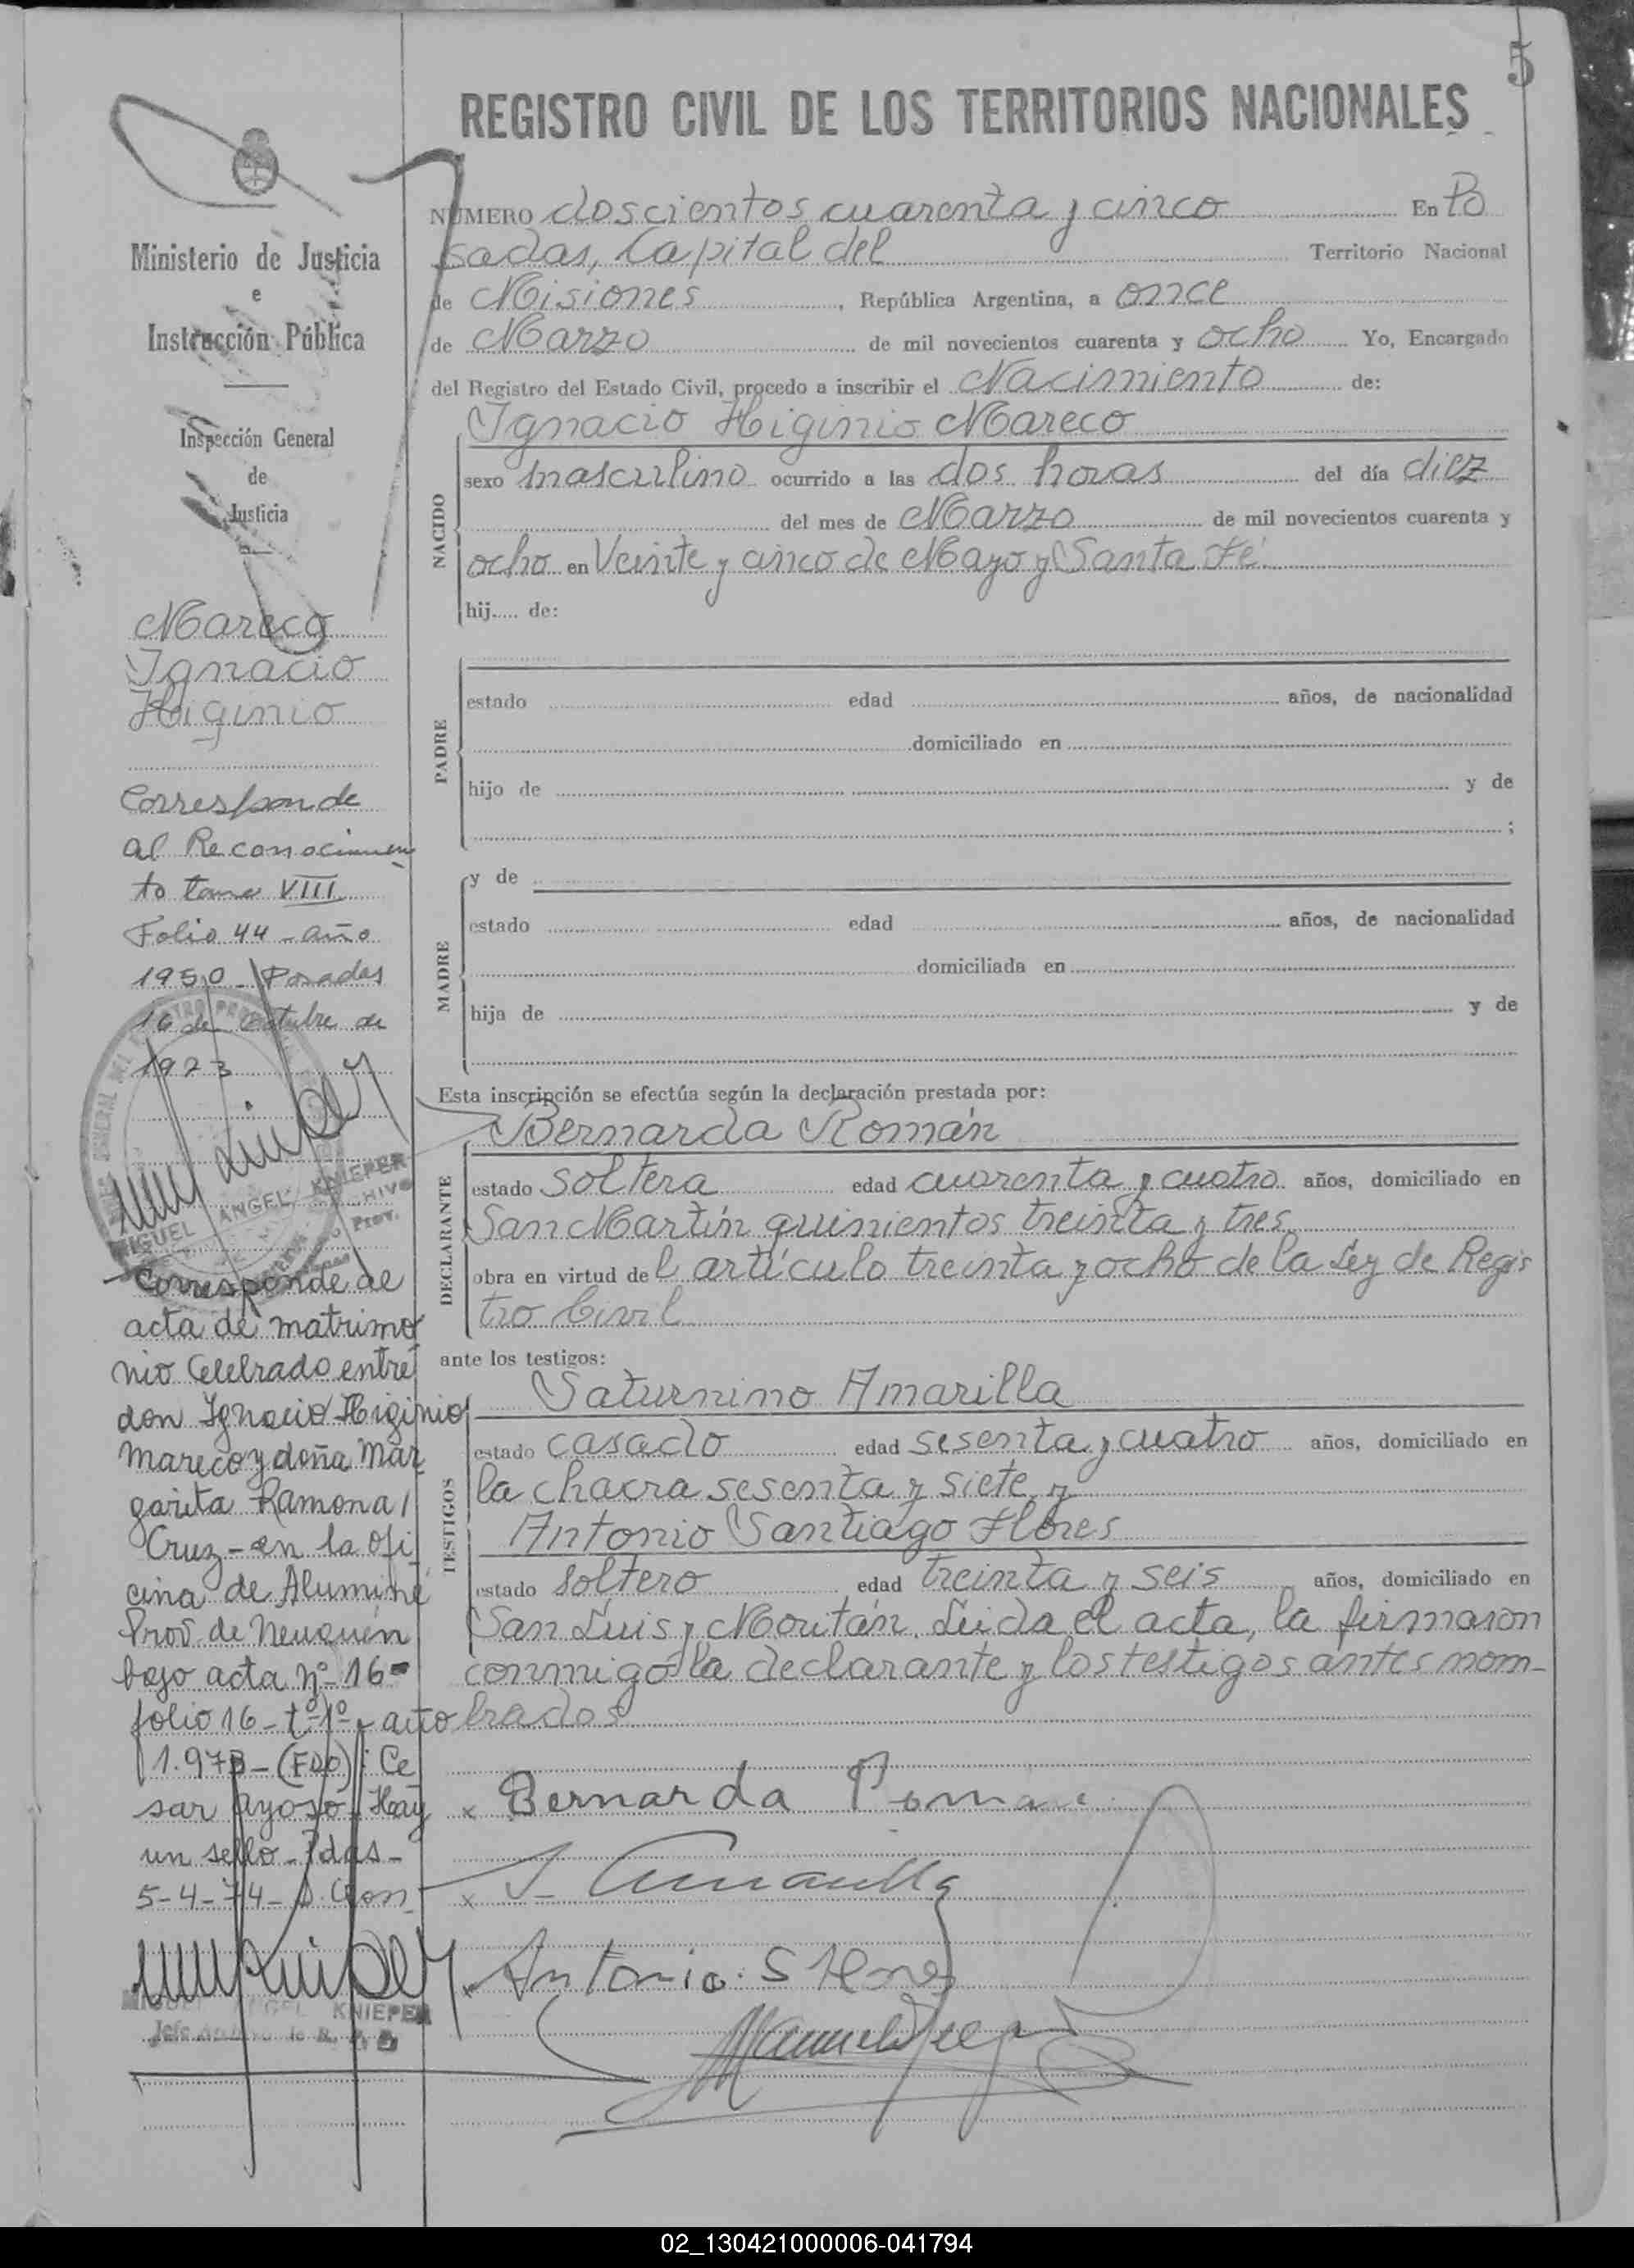 5
REGISTRO CIVIL DE LOS TERRITORIOS NACIONALES
Ministerio de Justicia
e
Instrucción Pública
Inspección General
de
Justicia
Mareco
Ignacio
Higinio
Corresponde
al Reconocimien
to tomo VIII
Folio 44 - año
1950 - Posadas
16 de Octubre de
1973
MIGUEL ANGEL KNIEPER
Corresponde al
acta de matrimo
nio Celebrado entre
don Ignacio Higinio
Mareco y doña Mar
garita Ramona
Cruz - en la ofi
cina de Aluminé
Prov. de Neuquén
bajo acta nº 16
folio 16 - tº 1º - año
1.973 - (FDO): Ce
sar Ayoso. Hay
un sello - Pdas -
5-4-74-
MIGUEL ANGEL KNIEPER
NÚMERO doscientos cuarenta y cinco En Po
sadas, Capital del Territorio Nacional
de Misiones, República Argentina, a once
de Marzo de mil novecientos cuarenta y ocho Yo, Encargado
del Registro del Estado Civil, procedo a inscribir el Nacimiento de:
Ignacio Higinio Mareco
NACIDO
sexo masculino ocurrido a las dos horas del día diez
del mes de Marzo de mil novecientos cuarenta y
ocho en Veinte y cinco de Mayo y Santa Fé
hij..... de:
PADRE
estado edad años, de nacionalidad
domiciliado en
hijo de y de
;
MADRE
y de
estado edad años, de nacionalidad
domiciliada en
hija de y de
Esta inscripción se efectúa según la declaración prestada por:
Bernarda Román
DECLARANTE
estado soltera edad cuarenta y cuatro años, domiciliado en
San Martín quinientos treinta y tres
obra en virtud del artículo treinta y ocho de la Ley de Regis
tro Civil
ante los testigos:
Saturnino Amarilla
TESTIGOS
estado casado edad sesenta y cuatro años, domiciliado en
la chacra sesenta y siete y
Antonio Santiago Flores
estado soltero edad treinta y seis años, domiciliado en
San Luis y Moritán. Leida el acta, la firmaron
conmigo la declarante y los testigos antes nom-
brados
x Bernarda Roman
x S. Amarilla
x Antonio S Flores
02_130421000006-041794